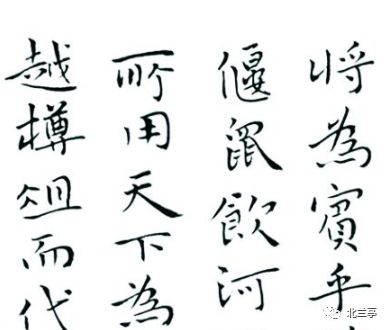 将為賓乎
偃鼠飲河
所用天下為
越樽俎而代
北兰亭